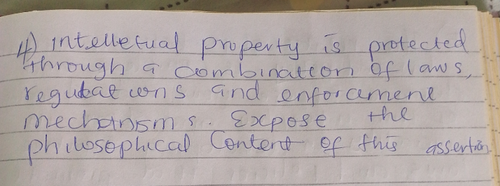 4) intelletual property is protected
through a combination of laws,
regulations and enforcement
mechanisms. Expose the
philosophical Content of this assertion